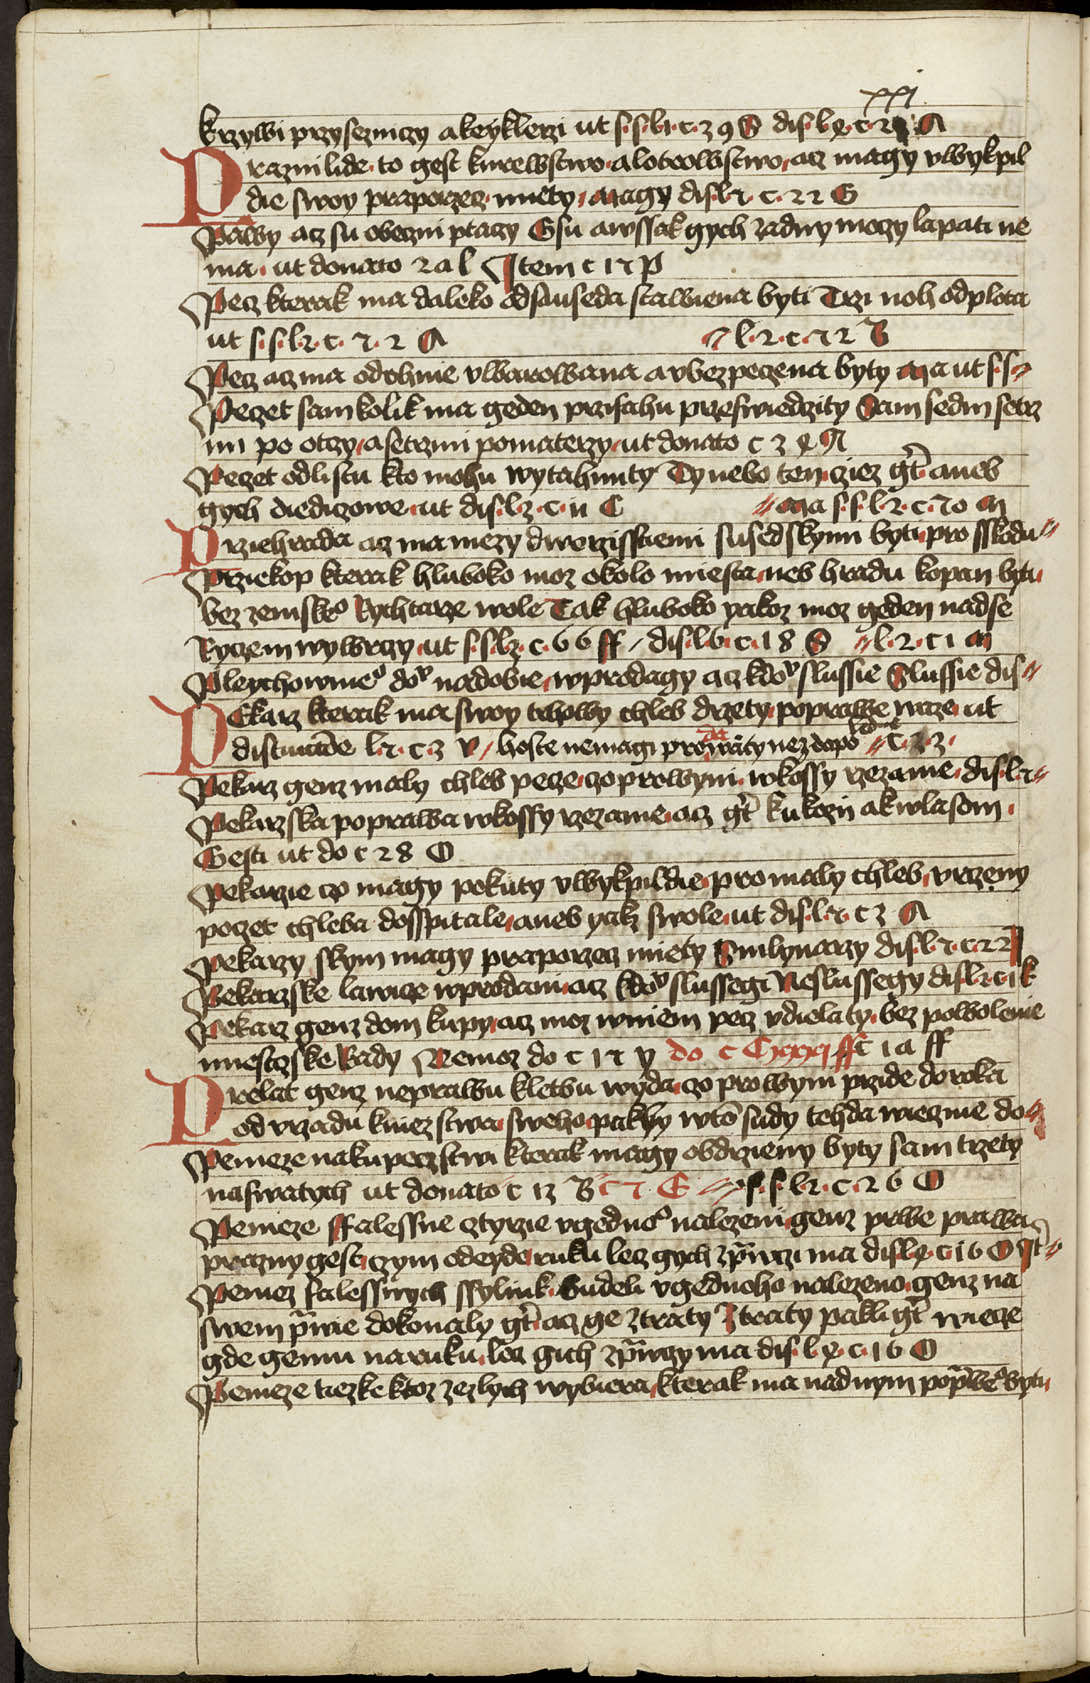 xxi
krzywi przysezniczy a keyklerzi ut s·s·l·1·c·z 9 S dis·l·4·c·2 A
Prazni lide· to gest kurewstwo· a lotrowstwo· acz magy vwykpil
die swoy praporzecz· miety· Magy dis·l·1· c· 22 G
Pawy acz su obeczni ptaczy Gsu awssak gych zadny moczy lapati ne
ma· ut donato 2 a l Item c 1 1 p
Pecz kterak ma daleko od suseda stawiena byti Trzi noh od plota
ut s·s·l·2· c· 7· 2 A l·2·c·7 2 B
Pecz acz ma od ohnie vwarowana a vbezpeczena byty Ma ut s·s·
Peczet sam kolik ma geden przisahu przeswiedczity Sam sedm setrz
mi po otczy· a setrzmi po materzy· ut donato c z 4 N
Peczet od listu kto mohu wytahnuty Ty nebo ten· giez gt aneb
gych diediczowe· ut dis·l·z·c·11 C Ma s·s·l·2·c·70 M
Prziehrada acz ma mezy dworzisstiemi susedskymi byti· pro sskodu
Prziekop kterak hluboko moz okolo miesta· neb hradu kopan byti
bez zemske Rychtarze wole Tak hluboko yakoz moz geden nad se
Ryczem wywrczy ut s·s·l·z·c·66 ff dis·l·6·c·18 S l·2·c 1 M
Pleychowine do nadobie· w prodagy acz kdo slussie Slussie dis
Pekarz kterak ma swoy trhowy chleb drzety· poprawe wrze· ut
distinccione l·1·c·z v hoste nemagi prodawaty nez do po c·z·z·
Pekarz genz maly chleb pecze· czo prowym· w kossy rzezanie· dis·l·1
Pekarzska poprawa w kossy rzezanie· acz gt k kozi a k wlasom·
Gesti ut do c 28 O
Pekarzie czo magy pokuty vwykpildie· pro maly chleb· vrczeny
poczet chleba do sspitale· aneb yakz swole· ut dis·l·1·c z A
Pekarzy skym magy praporzecz miety Smlynarzy dis·l·1·c·22
Pekarzske lawicze w prodani· acz kdo slussegi Neslussegy dis·l·1·c·1 k
Pekarz genz dom kupy· acz moz w niem pecz vdielaty· bez powolenie
miesczske Rady Nemoz do c 1 1 y do c Cxxxj ff c 1 a ff
Prelat genz neprawu kletbu wyda· czo prowym przide do roka
od vrzadu kniezstwa· sweho· pakby w to sudy tehda wiecznie do
Penieze na kupeczstwi kterak magy obdrzieny byty sam trzety
na swatych ut donato c 1z B c 7 E s·s·l·2·c·26 O
Penieze ffalessne cztyrzie v gedno nalezeni· genz prwe prawa
prazny gest· czym odeyde· ruku lecz gych zprawczi ma dis·l·4·c 16 O It
Peniez falessnych ssylink· budeli v gednoho nalezeno· genz na
swem prawie dokonaly gt· acz ge ztraty Ztraty pakli gt wiecze
gde gemu na ruku· lecz gich zprawczy ma dis·l·4·c·16 O
Penieze tiezke ktoz zezlych wybiera· kterak ma nad nym poprawe byti